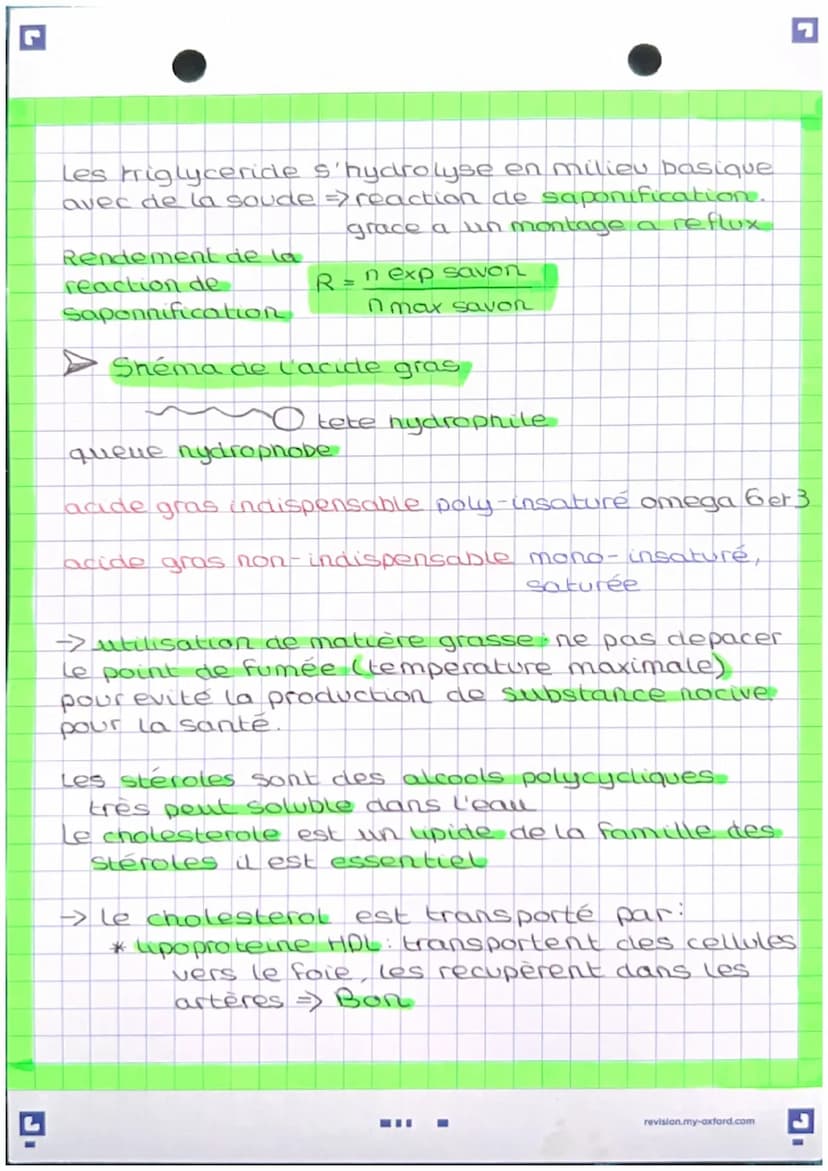 Les triglyceride s'hydrolyse en milieu basique
avec de la soude => reaction de saponification.
grace a un montage a reflux
Rendement de la
reaction de
saponnification
R = n exp savon
n max savon
Shéma de l'acide gras
tete hydrophile
queue hydrophobe
acide gras indispensable poly-insaturé omega 6 et 3
acide gras non-indispensable mono-insaturé,
saturée
-> utilisation de matière grasse : ne pas depacer
le point de fumée (température maximale)
pour evité la production de substance nocive
pour la santé.
Les stéroles sont des alcools polycycliques
très peut soluble dans l'eau
Le cholesterole est un lipide de la famille des
stéroles il est essentiel
-> Le cholesterol est transporté par :
* lipoproteine HDL : transportent des cellules
vers le foie, les recupèrent dans les
artères => Bon
revision.my-oxford.com